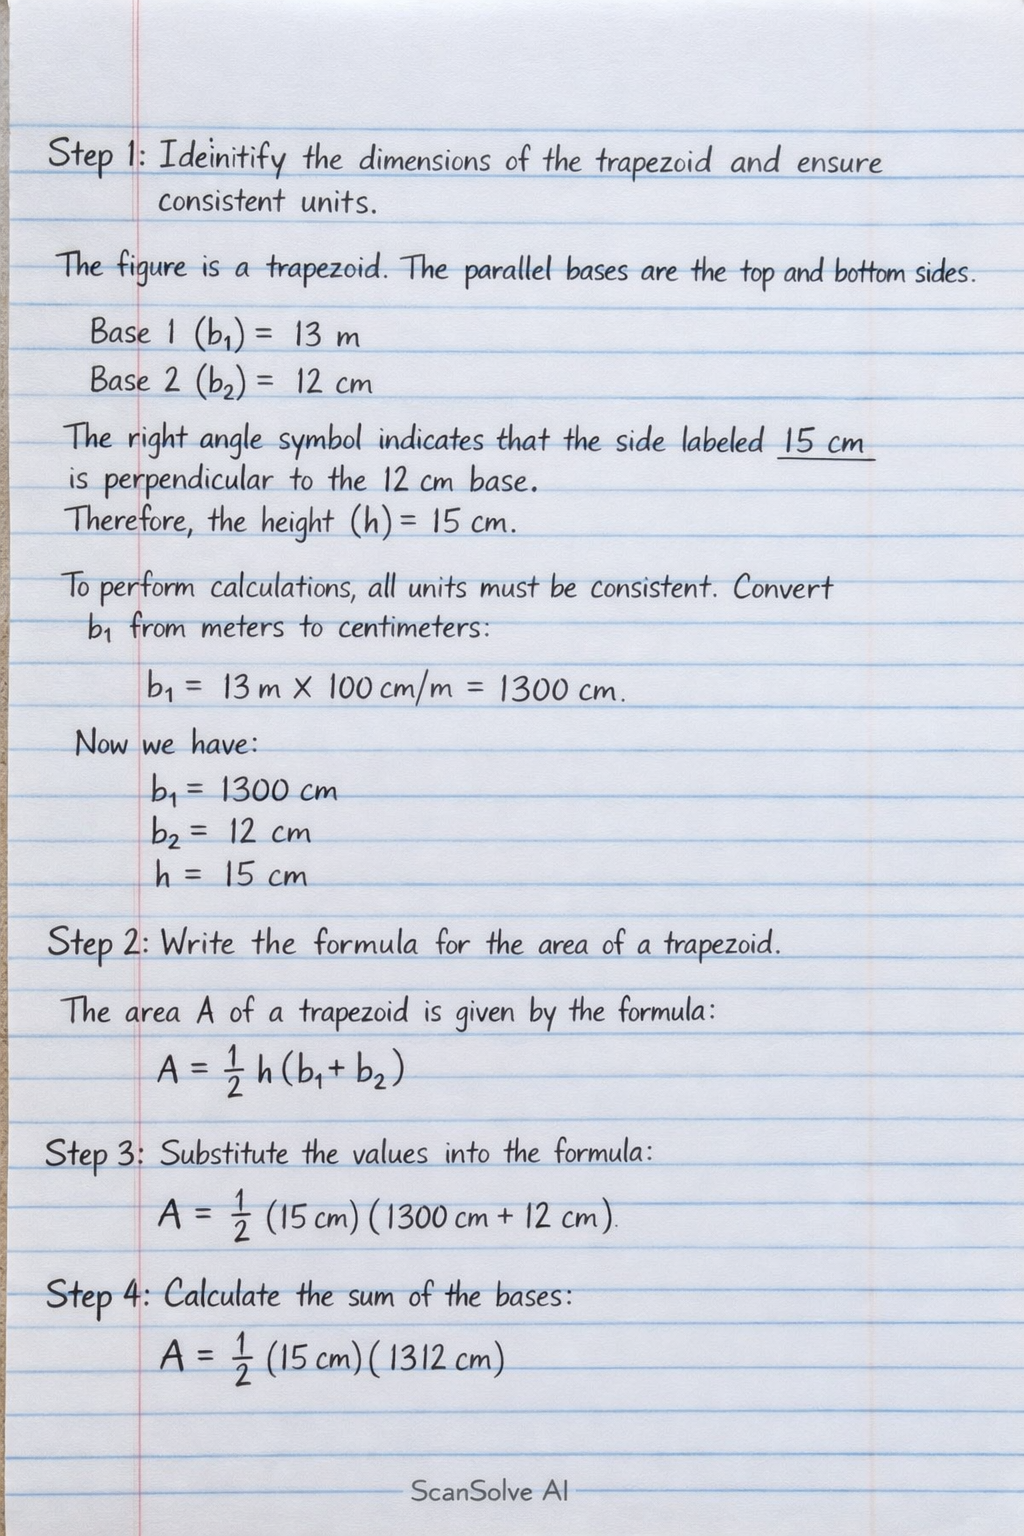 Step 1: Ideinitify the dimensions of the trapezoid and ensure
consistent units.
The figure is a trapezoid. The parallel bases are the top and bottom sides.
Base 1 (b₁) = 13 m
Base 2 (b₂) = 12 cm
The right angle symbol indicates that the side labeled 15 cm
is perpendicular to the 12 cm base.
Therefore, the height (h) = 15 cm.
To perform calculations, all units must be consistent. Convert
b₁ from meters to centimeters:
b₁ = 13 m × 100 cm/m = 1300 cm.
Now we have:
b₁ = 1300 cm
b₂ = 12 cm
h = 15 cm
Step 2: Write the formula for the area of a trapezoid.
The area A of a trapezoid is given by the formula:
A = 1/2 h (b₁ + b₂)
Step 3: Substitute the values into the formula:
A = 1/2 (15 cm) (1300 cm + 12 cm).
Step 4: Calculate the sum of the bases:
A = 1/2 (15 cm) (1312 cm)
ScanSolve AI